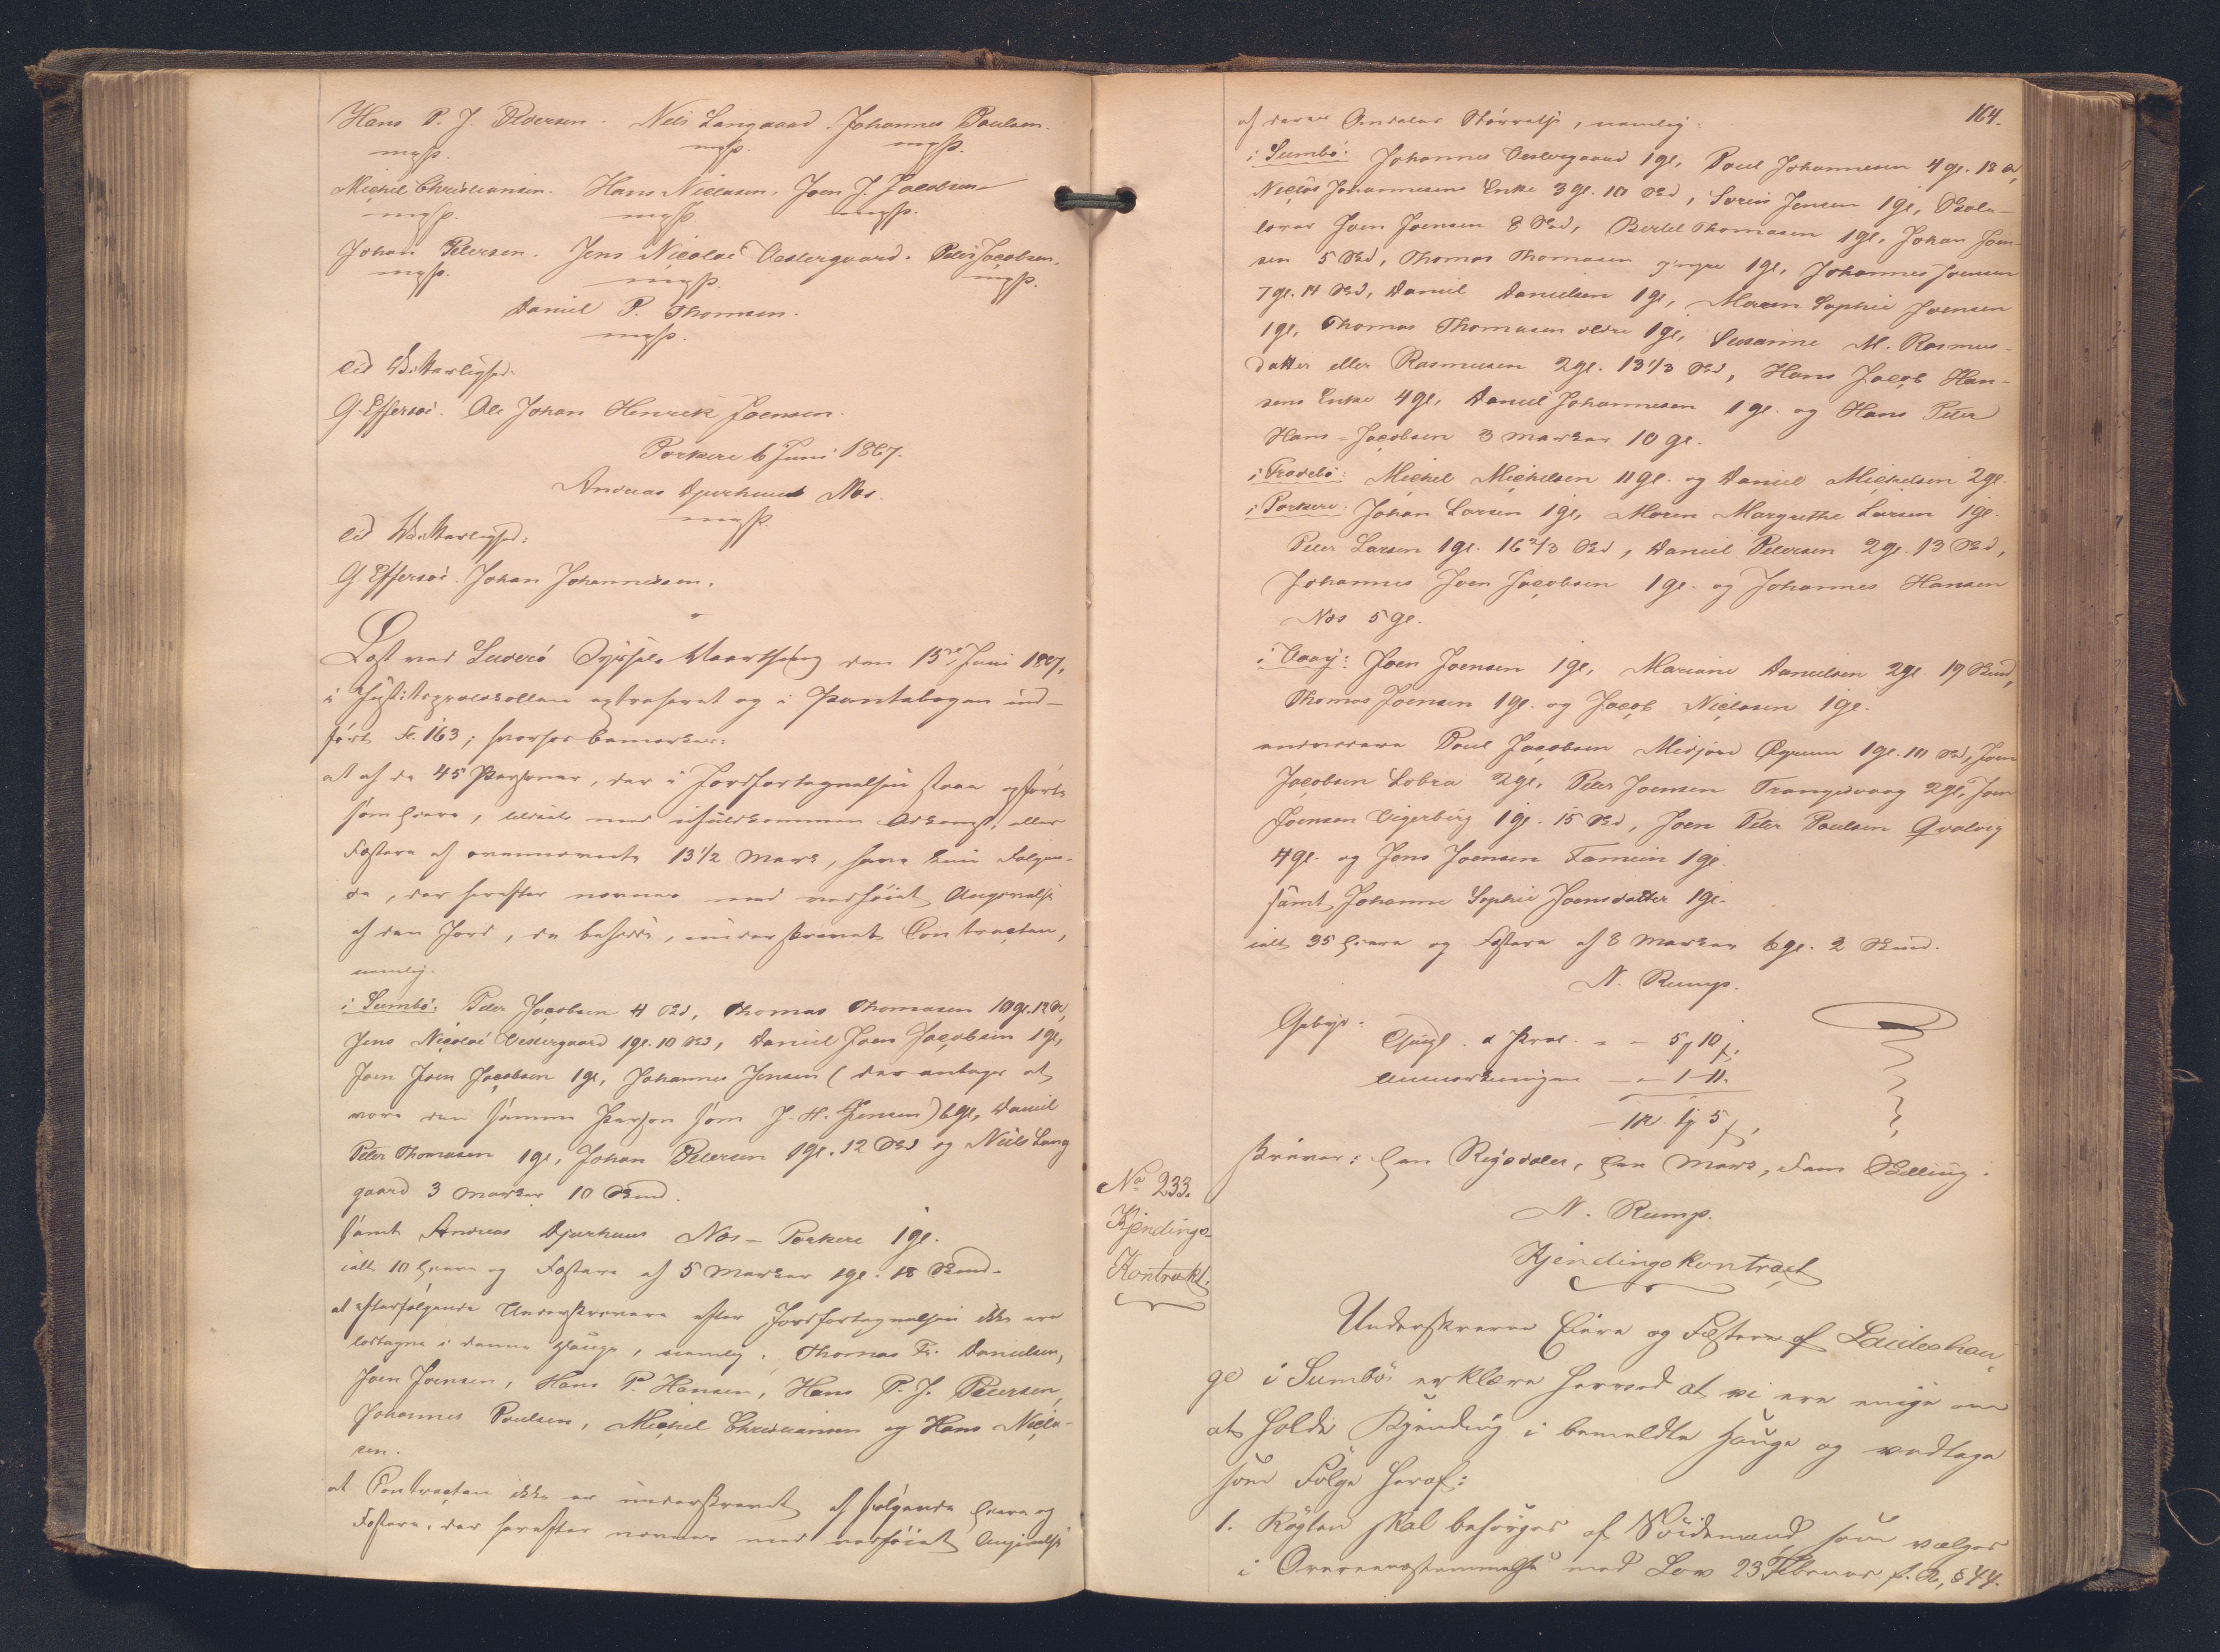 Hans P. J. Pedersen. Niels Langgaard. Johannes Poulsen.
mp. mp. mp.
Michel Christiansen. Hans Niclasen. Joen J. Jacobsen
mp. mp. mp.
Johan Petersen. Jens Nicolai Vestergaard. Peter Jacobsen.
mp. mp. mp.
Daniel P. Thomsen.
mp.
Til Vitterlighed:
G. Effersøe. Ole Johan Henrik Joensen.
Porkere 6 Juni 1867.
Andreas Djurhuus Næs.
mp.
Til Vitterlighed:
G. Effersøe. Johan Johannesen.
Læst ved Suderø Syssels Vaarthing den 15de Juni 1867,
i Justitsprotokollen extraheret og i Pantebogen ind-
ført Fo. 163; hvorhos bemærkes:
at af de 45 Personer, der i Jordfortegnelsen staae opførte
som Eiere, tildeels med ufuldkommen Adkomst, eller
Fæstere af ovennævnte 13½ Mark, have kun Følgen-
de, der herefter nævnes med vedføiet Angivelse
af den Jord, de besidde, underskrevet Contracten,
namlig:
i Sumbø: Peter Jacobsen 4 Skd, Thomas Thomasen 10 gl. 12 Sk,
Jens Nicolai Vestergaard 1 gl. 10 Skd, Daniel Joen Jacobsen 1 gl,
Joen Joen Jacobsen 1 gl, Johannes Jensen (der antages at
være den samme Person som J. H. Jensen) 6 gl, Daniel
Peter Thomasen 1 gl, Johan Petersen 1 gl. 12 Skd og Niels Lang
gaard 3 Marker 10 Skind.
samt Andreas Djurhuus Næs-Porkere 1 gl.
ialt 10 Eiere og Fæstere af 5 Marker 1 gl. 18 Skind.
at efterfølgende Underskrivere efter Jordfortegnelsen ikke ere
lodtagne i denne Hauge, namlig: Thomas Fr. Danielsen,
Joen Joensen, Hans P. Hansen, Hans P. J. Petersen,
Johannes Poulsen, Michel Christiansen og Hans Nicla-
sen.
at Contracten ikke er underskrevet af følgende Eiere og
Fæstere, der herefter nævnes med vedføiet Angivelse
164.
af deres Andeles Størrelse, namlig:
i Sumbø: Johannes Vestergaard 1 gl, Poul Johannesen 4 gl. 18 Sk,
Niclas Johannesens Enke 3 gl. 10 Skd, Søren Jensen 1 gl, Skole-
lærer Joen Joensen 8 Skd, Bertel Thomasen 1 gl, Johan Joen-
sen 5 Skd, Thomas Thomasen yngre 1 gl, Johannes Joensen
7 gl. 14 Skd, Daniel Danielsen 1 gl, Maren Sophie Joensen
1 gl, Thomas Thomasen ældre 1 gl, Susanne M. Rasmus-
datter eller Rasmusen 2 gl. 13 1/3 Skd, Hans Jacob Han-
sens Enke 4 gl, Daniel Johannesen 1 gl. og Hans Peter
Hans-Jacobsen 3 Marker 10 gl.
i Frodebø: Michel Michelsen 11 gl. og Daniel Michelsen 2 gl.
i Porkere: Johan Larsen 1 gl, Maren Margrethe Larsen 1 gl.
Peter Larsen 1 gl. 16 2/3 Skd, Daniel Petersen 2 gl. 13 Skd,
Johannes Joen Jacobsen 1 gl. og Johannes Hansen
Næs 5 gl.
i Vaag: Joen Joensen 1 gl, Mariane Danielsen 2 gl 19 Skind,
Thomas Joensen 1 gl. og Jacob Niclasen 1 gl.
endvidere Poul Jacobsen Midjord Øgrum 1 gl. 10 Skd, Joen
Jacobsen Lobra 2 gl, Peter Joensen Trangisvaag 2 gl, Joen
Joensen Vigerberg 1 gl. 15 Skd, Joen Peter Poulsen Qvalvig
4 gl. og Jens Joensen Famien 1 gl.
samt Johanne Sophie Joensdatter 1 gl.
ialt 35 Eiere og Fæstere af 8 Marker 6 gl. 2 Skind.
N. Rump.
Gebyr:
Thingl. & Prot. - - 5 10
Anmærkningen - - 1 - 11.
- 1 Rd. 1 5
skriver: Een Rigsdaler, Een Mark, Fem Skilling.
N. Rump.
No 233.
Kjendings-
Kontrakt.
Kjendingskontract
Underskrevne Eiere og Fæstere af Laideshau-
ge i Sumbø erklære herved at vi ere enige om
at holde Kjending i bemeldte Hauge og vedtage
som Følge heraf:
1. Røgten skal besørges af Søidemænd som vælges
i Overeensstemmelse med Lov 23 Februar f. A., § 44.